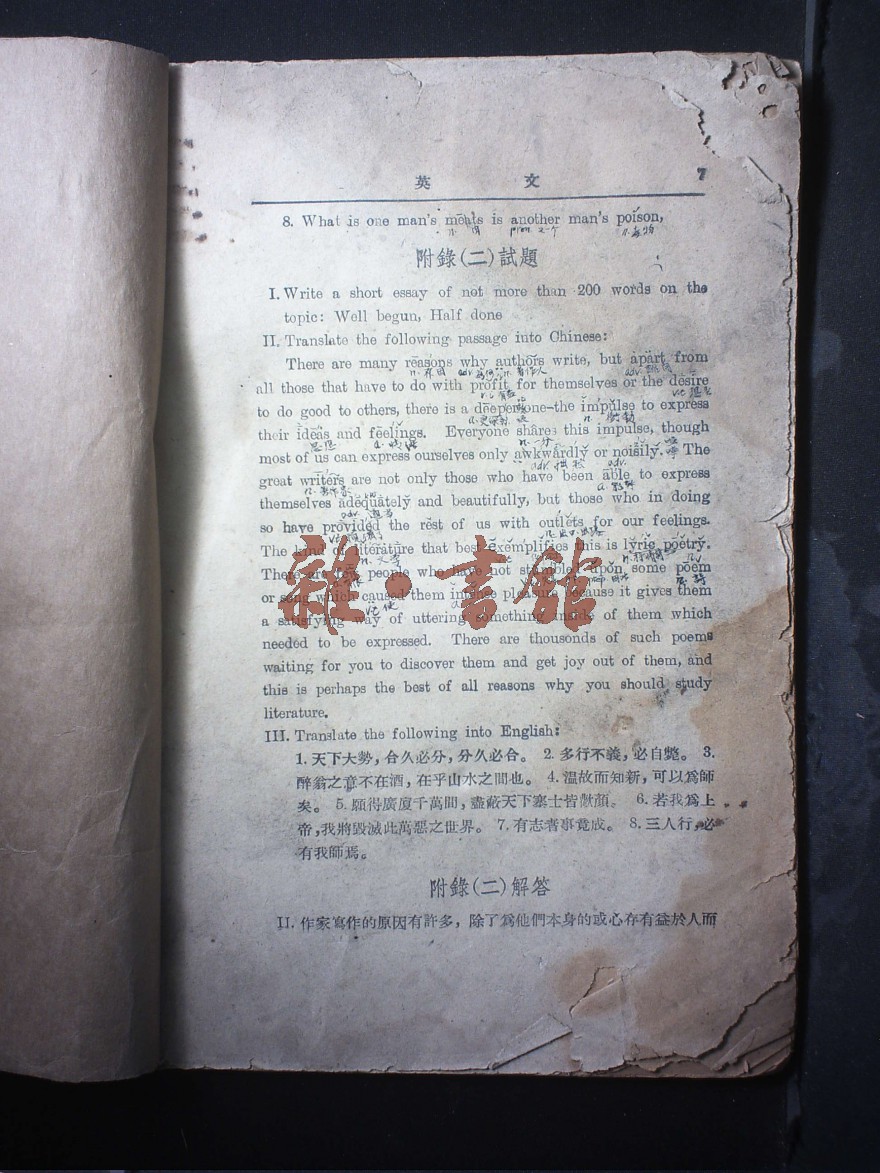 英 文 7
8. What is one man's meats is another man's poison,
附錄(二)試題
I. Write a short essay of not more than 200 words on the
topic: Well begun, Half done
II. Translate the following passage into Chinese:
There are many reasons why authors write, but apart from
all those that have to do with profit for themselves or the desire
to do good to others, there is a deeper one—the impulse to express
their ideas and feelings. Everyone shares this impulse, though
most of us can express ourselves only awkwardly or noisily. The
great writers are not only those who have been able to express
themselves adequately and beautifully, but those who in doing
so have provided the rest of us with outlets for our feelings.
The kind of literature that best exemplifies this is lyric poetry.
There are few people who have not stumbled upon some poem
or song which caused them intense pleasure because it gives them
a satisfying way of uttering something inside of them which
needed to be expressed. There are thousands of such poems
waiting for you to discover them and get joy out of them, and
this is perhaps the best of all reasons why you should study
literature.
III. Translate the following into English:
1. 天下大勢，合久必分，分久必合。 2. 多行不義，必自斃。 3.
醉翁之意不在酒，在乎山水之間也。 4. 温故而知新，可以爲師
矣。 5. 願得廣廈千萬間，盡蔽天下寒士皆歡顔。 6. 若我爲上
帝，我將毀滅此萬惡之世界。 7. 有志者事竟成。 8. 三人行，必
有我師焉。
附錄(二)解答
II. 作家寫作的原因有許多，除了爲他們本身的或心存有益於人而
雜·書館